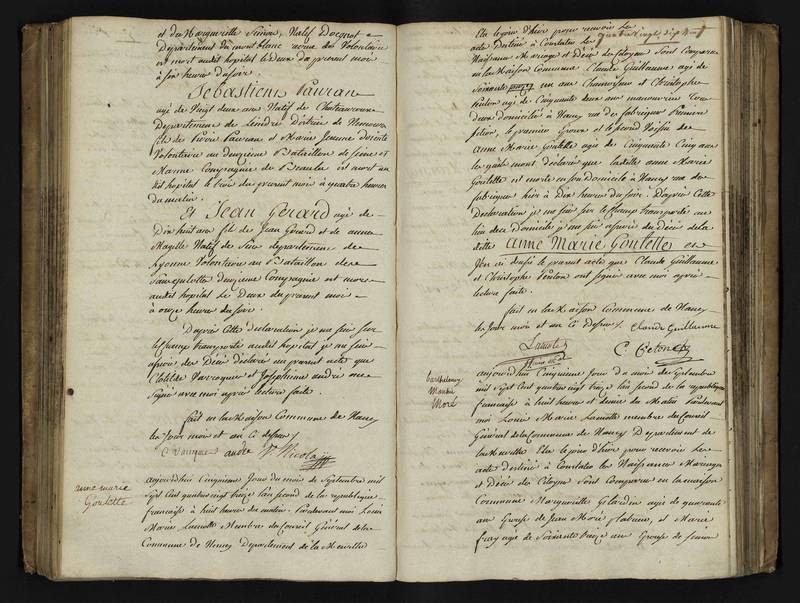 et de Marguerite Simon, Natif Docquet
Departement du mont blanc Volontaire
est mort audit hopital le Deux du present mois
à six heures du soir.
Sebastien Pauran
agé de Vingt deux ans Natif de Chateauroux
Departement de Lindre District de
fils de Pierre Pauran et Marie Jeanne
Volontaire au deuxieme Bataillon de Seine et
Marne Compagnie de Beaula est mort au
dit hopital le trois du present mois à quatre heures
du matin.
Et Jean Gerard agé de
Dix huit ans fils de Jean Gerard et de anne
Magelle Natif de departement de
Lyonne Volontaire au Bataillon des
Sansculotte Deuxieme Compagnie est mort
audit hopital le Deux du present mois
à onze heures du soir.
Daprès Cette déclaration je me suis sur
le champ transporté audit hopital je me suis
assuré des Décès déclarés au present acte que
Clotilde Varroquier et Josephine andré ont
Signé avec moi après lecture faite.
fait en la Maison Commune de Nancy
les Jour mois et an Ci dessus.
andré V. Nicolas
anne marie
Goutette
aujourdhui Cinquieme Jour du mois de Septembre mil
sept Cent quatre vingt treize lan second de la republique
francaise à huit heures du matin. Pardevant moi Louis
Marie Lamotte Membre du Conseil Général de la
Commune de Nancy Departement de la Meurthe
Elu le jour d'hier pour recevoir les
quatre vingt dix sept
actes Destinés à Constater les
Naissances Mariages et Décès des Citoyens Sont Comparus
en la Maison Commune Claude Guillaume agé de
Soixante onze ans Chamoiseur et Christophe
agé de Cinquante deux ans manoeuvre tous
deux domiciliés à Nancy rue des fabriques Premiere
section, le premier Epoux et le second Voisin de
Anne Marie Goutette agée de Cinquante Cinq ans
lesquels mont déclaré que ladite anne Marie
Goutette est morte en son domicile à Nancy rue des
fabriques hier à Dix heures du soir. Daprès Cette
Déclaration je me suis sur le champ transporté au
lieu de ce Domicile je me suis assuré du Décès de la
ditte Anne Marie Goutette et
jen ai dressé le present acte que Claude Guillaume
et Christophe ont signé avec moi après
lecture faite.
fait en la Maison Commune de Nancy
les jour mois et an Ci dessus. Claude Guillaume
Lamotte
C.
Barthelemy
Moré
aujourdhui Cinquieme Jour du mois de Septembre
mil sept Cent quatre vingt treize lan second de la republique
francaise à huit heures et demie du Matin Pardevant
moi Louis Marie Lamotte membre du Conseil
Général de la Commune de Nancy Departement de
la Meurthe Elu le jour d'hier pour recevoir les
actes destinés à Constater les Naissances Mariages
et Décès des Citoyens Sont Comparus en la maison
Commune Marguerite Gelardin agée de quarante
ans Epouse de Jean Moré et Marie
agée de Soixante treize ans Epouse de